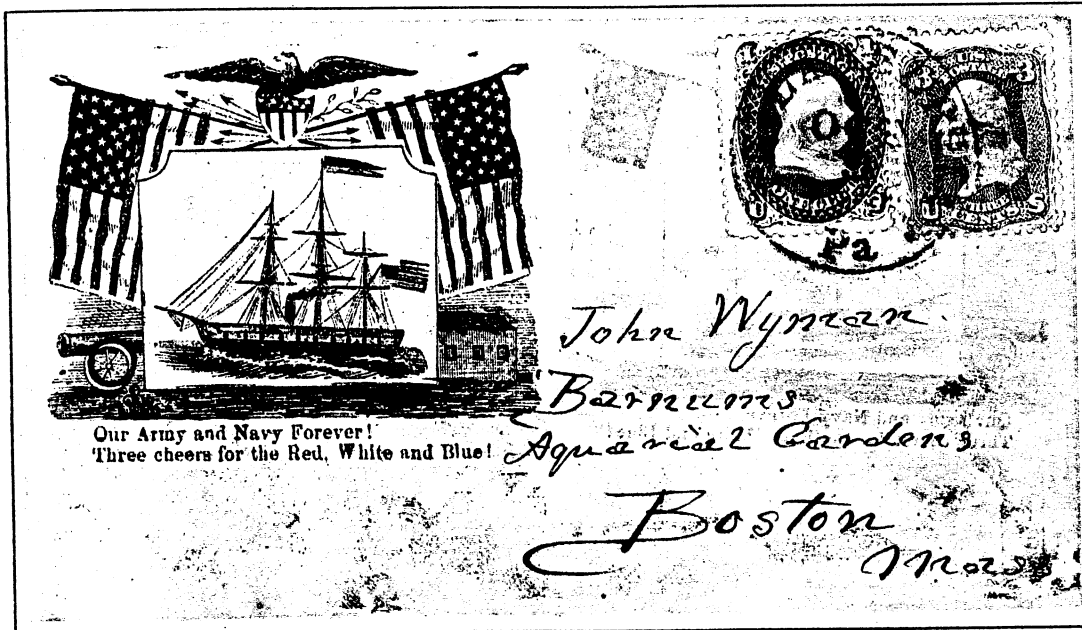 Our Army and Navy Forever!
Three cheers for the Red, White and Blue!
Pa
John Wyman
Barnums
Aquarial Gardens
Boston
Mass